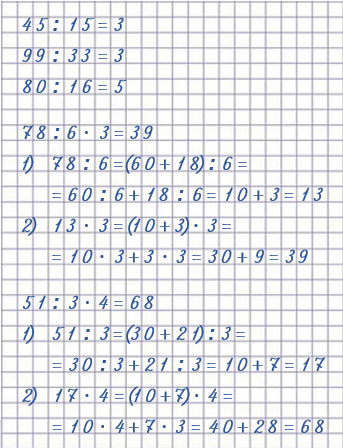 45 : 15 = 3
99 : 33 = 3
80 : 16 = 5
78 : 6 · 3 = 39
1) 78 : 6 = (60 + 18) : 6 =
= 60 : 6 + 18 : 6 = 10 + 3 = 13
2) 13 · 3 = (10 + 3) · 3 =
= 10 · 3 + 3 · 3 = 30 + 9 = 39
51 : 3 · 4 = 68
1) 51 : 3 = (30 + 21) : 3 =
= 30 : 3 + 21 : 3 = 10 + 7 = 17
2) 17 · 4 = (10 + 7) · 4 =
= 10 · 4 + 7 · 3 = 40 + 28 = 68